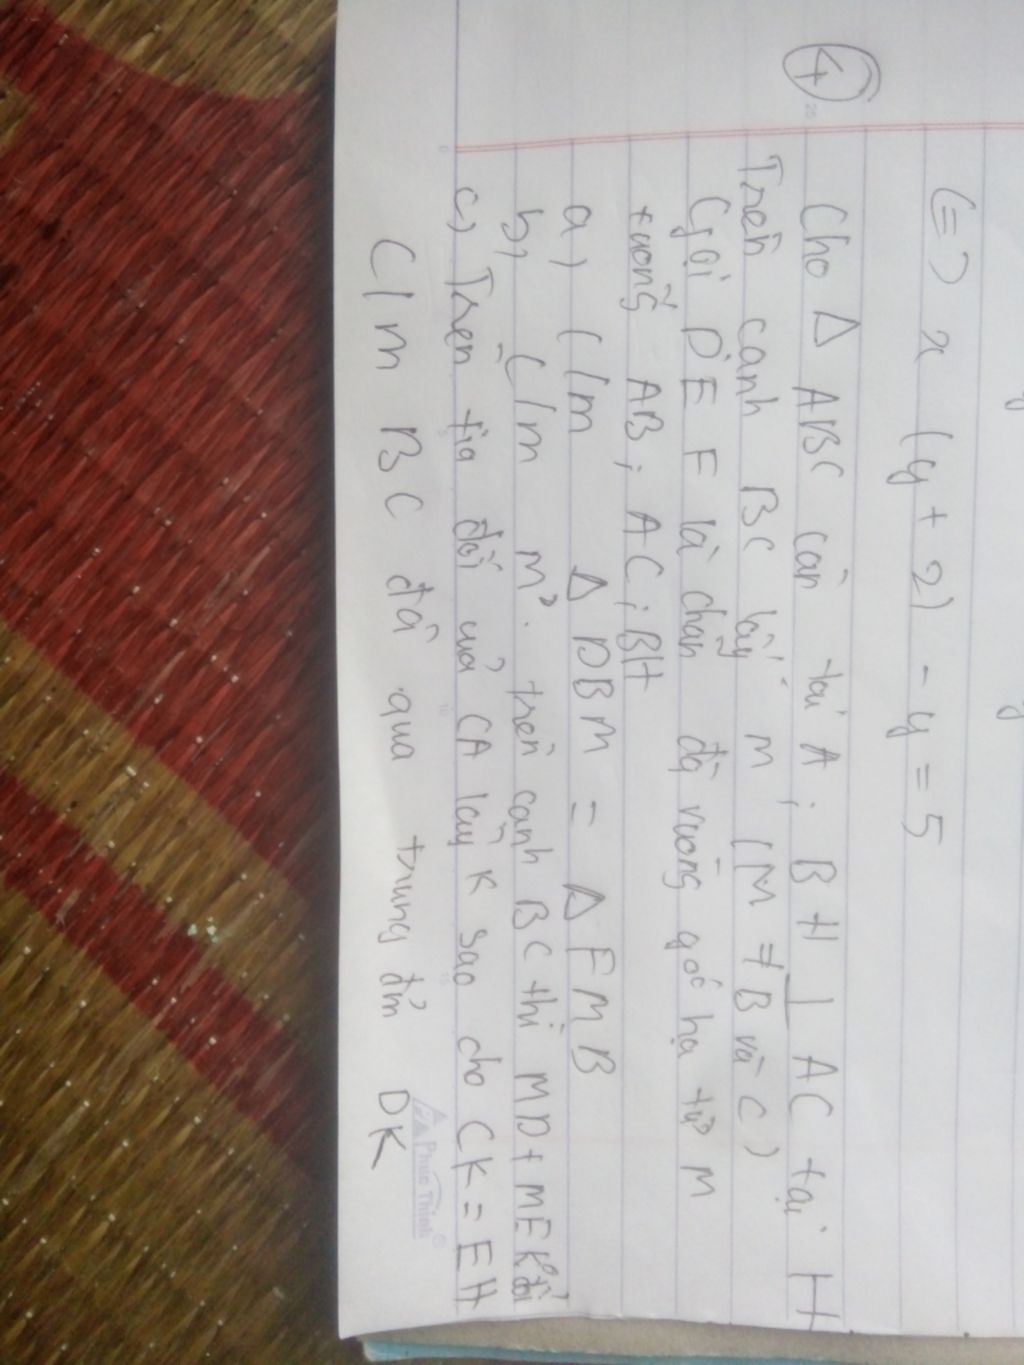 (=) x (y + 2) - y = 5
④ Cho Δ ABC cân tại A; BH ⊥ AC tại H
Trên cạnh BC lấy M (M ≠ B và C)
Gọi D E F là chân đg vuông góc hạ từ M
xuống AB; AC; BH
a) C/m Δ DBM = Δ FMB
b) C/m M trên cạnh BC thì MD + ME k° đổi
c) Trên tia đối của CA lấy K sao cho CK = EH
C/m BC đi qua trung đm DK
Phúc Thịnh